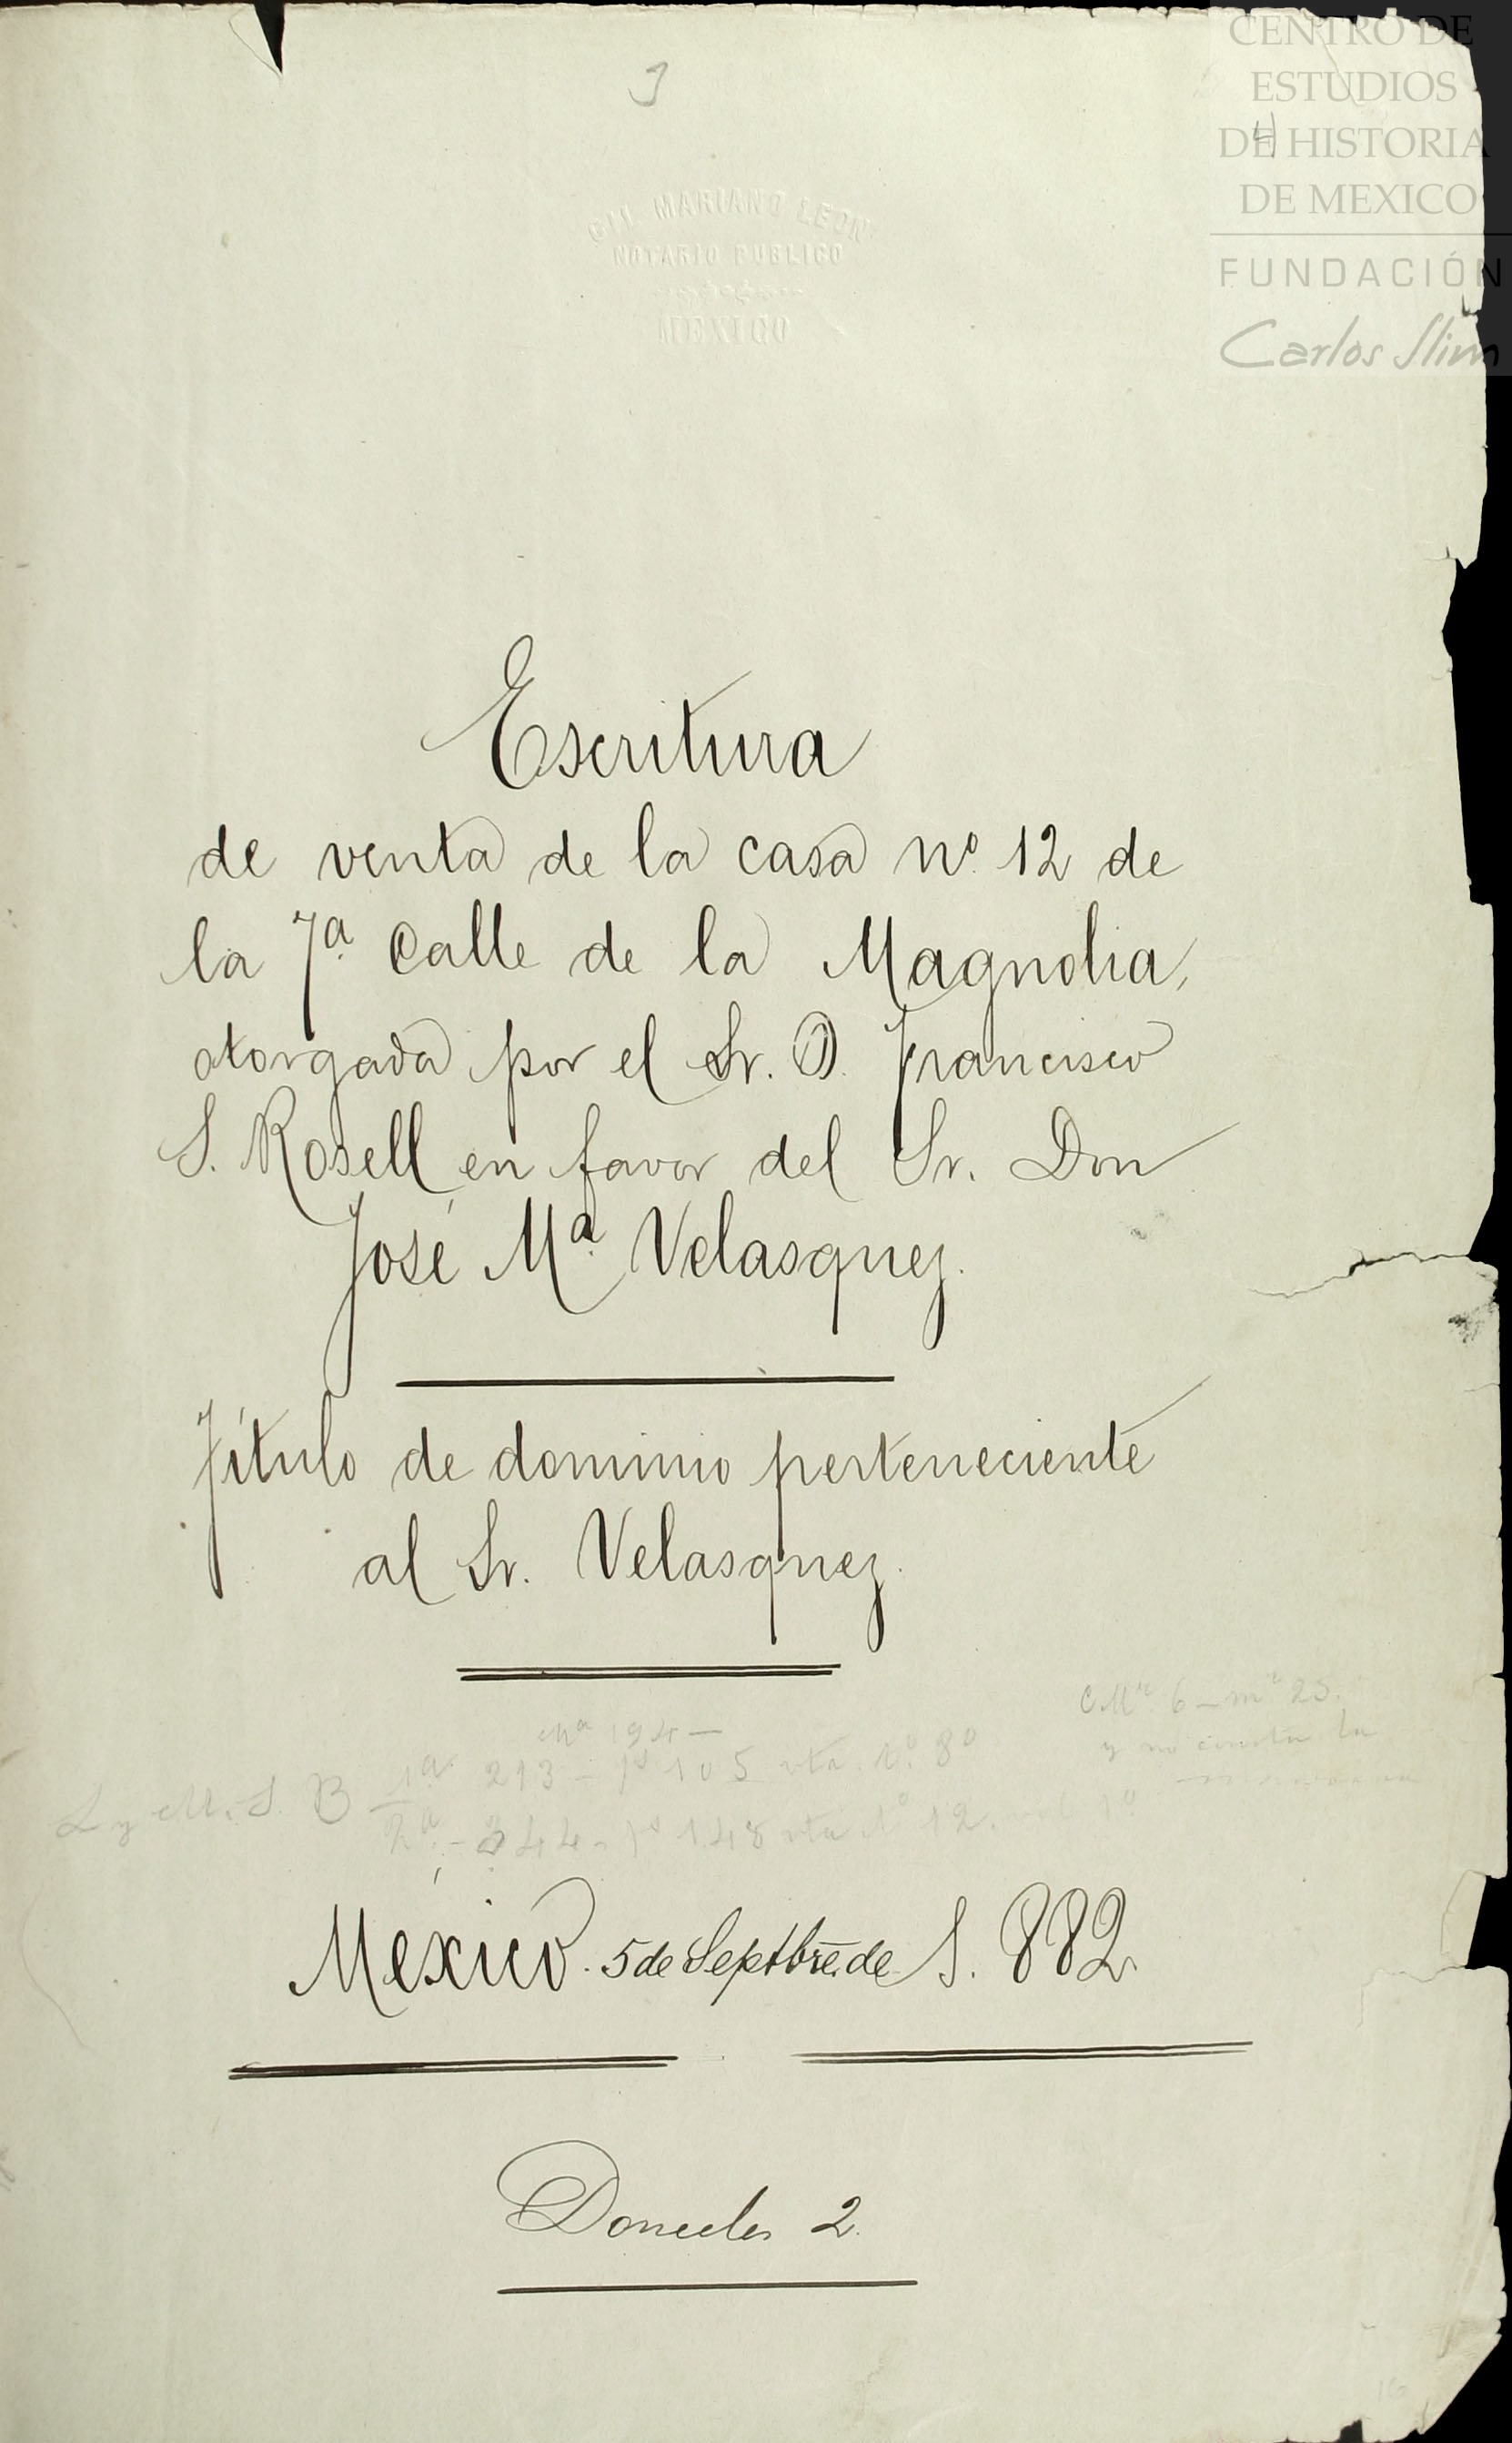 3
CENTRO DE
ESTUDIOS
DE HISTORIA
DE MEXICO
FUNDACIÓN
Carlos Slim
4
GIL MARIANO LEON
NOTARIO PUBLICO
MEXICO
Escritura
de venta de la casa nº. 12 de
la 7ª. Calle de la Magnolia,
otorgada por el Sr. D. Francisco
S. Rosell en favor del Sr. Don
José Mª. Velasquez.
Título de dominio perteneciente
al Sr. Velasquez.
6 - 25.
y no consta la
194 -
1ª. 213 - 105 vta. 8º
L y M. S. B
2ª. - 344 - 148 vta 12. 1º
México. 5 de Septbre. de 1.882
Donceles 2.